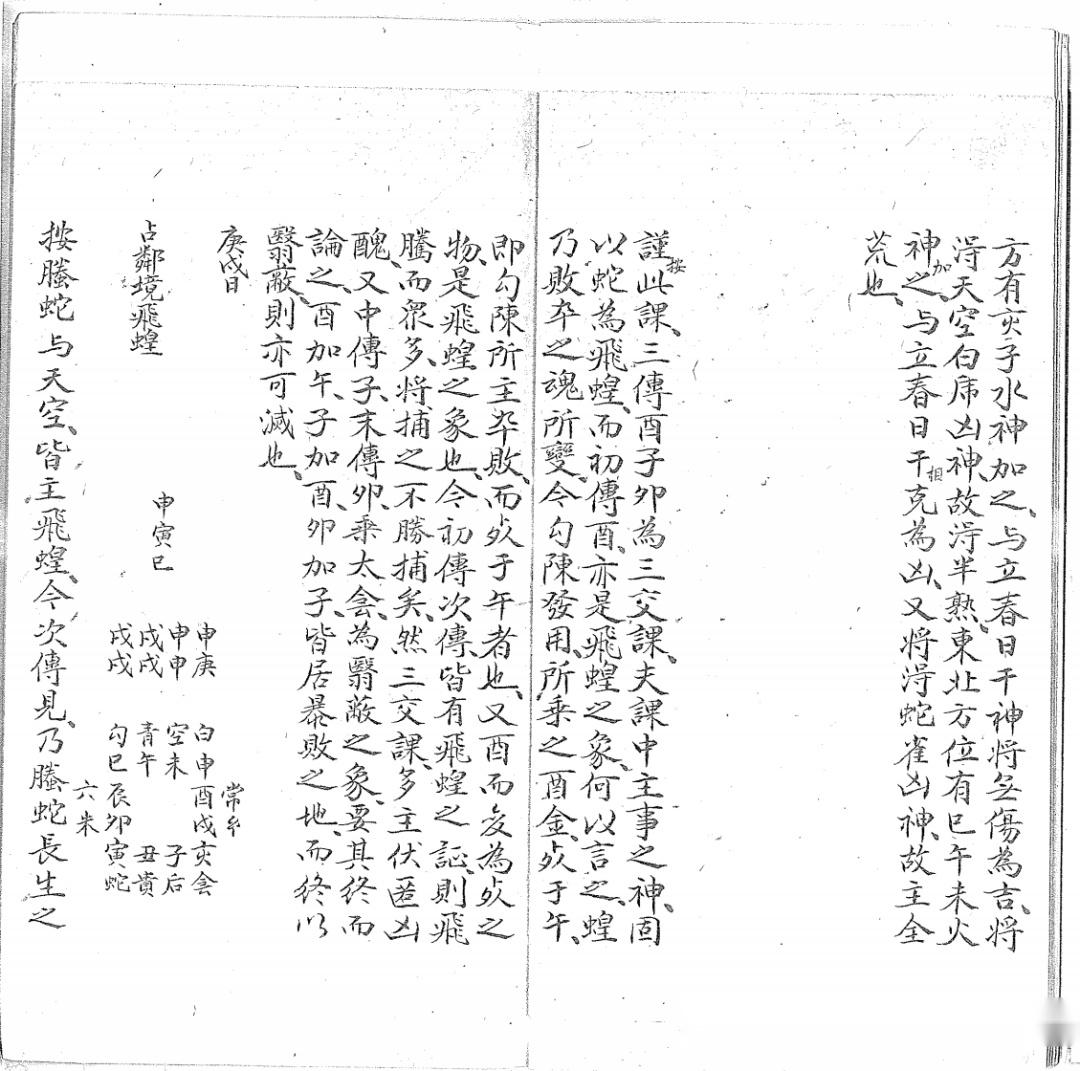 方有亥子水神加之、与立春日干神將无傷為吉、將
淂天空白虎凶神、故淂半熟、東北方位有巳午未火
神加之、与立春日干相克為凶、又將淂蛇雀凶神、故主全
荒也、
謹按此課、三傳酉子卯為三交課、夫課中主事之神、固
以蛇為飛蝗、而初傳酉、亦是飛蝗之象、何以言之、蝗
乃敗卒之魂所變、今勾陳發用、所乘之酉金、死于午、
即勾陳所主卒敗、而死于午者也、又酉而為死之
物、是飛蝗之象也、今初傳次傳、皆有飛蝗之証、則飛
騰而衆多、將捕之不勝捕矣、然三交課、多主伏匿凶
醜、又中傳子、末傳卯、乘太会、為翳蔽之象、要其終而
論之、酉加午、子加酉、卯加子、皆居暴敗之地、而終以
翳蔽、則亦可滅也、
庚戌日
占鄰境飛蝗
申寅巳
申庚
申申
戌戌
戌戌
常
白申酉戌亥会
空未 子后
青午 丑贵
勾巳辰卯寅蛇
六
按螣蛇与天空、皆主飛蝗、今次傳見、乃螣蛇長生之